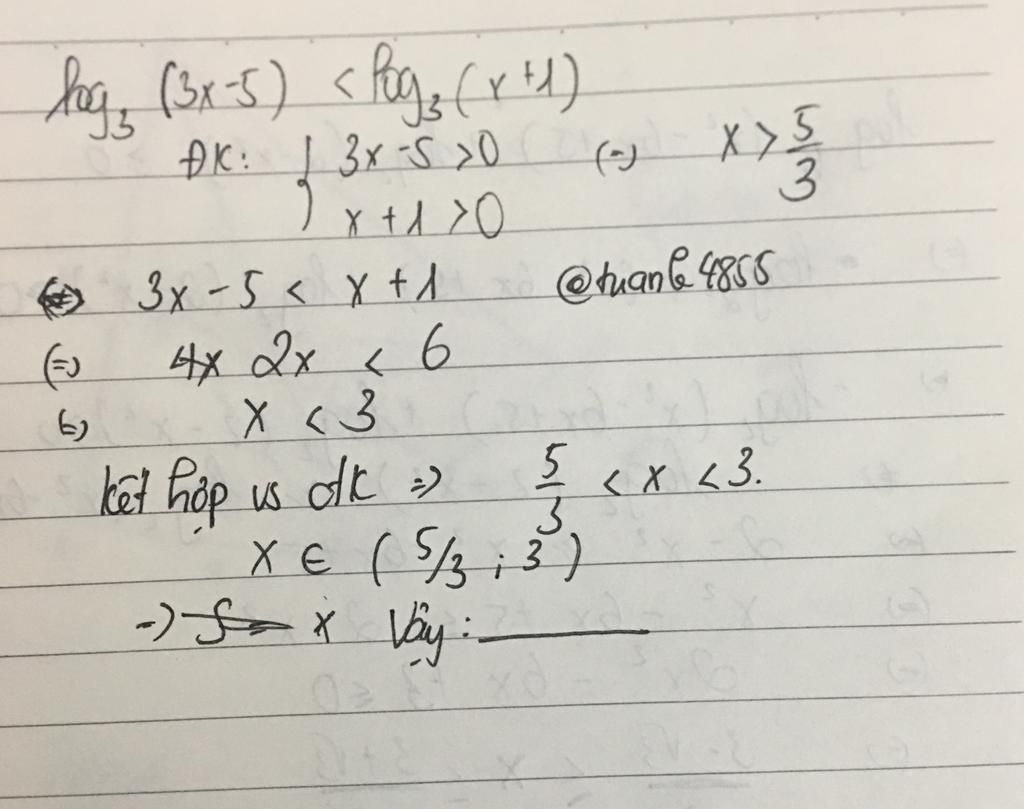 log₃ (3x-5) < log₃ (x+1)
ĐK: { 3x-5 >0 (=) x > 5/3
x + 1 >0
3x - 5 < x + 1 @tuanle4855
(=) 4x 2x < 6
(=) x < 3
kết hợp vs đk => 5/3 < x < 3.
x ∈ (5/3 ; 3)
-) S= x Vậy: